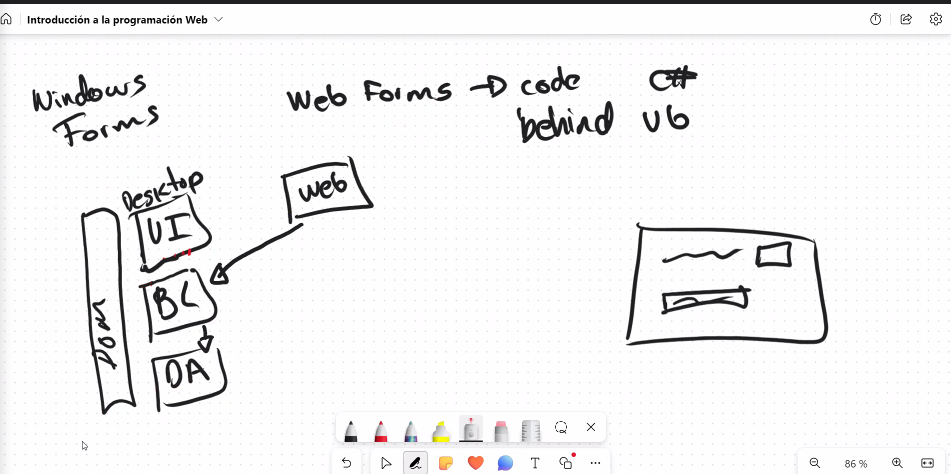 Introducción a la programación Web
Windows
Forms
Web Forms → code
behind
C#
VB
Desktop
UI
Web
BL
DA
Dom
86 %